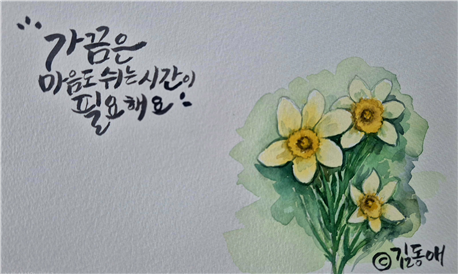 가끔은
마음도 쉬는 시간이
필요해요!
©김동애